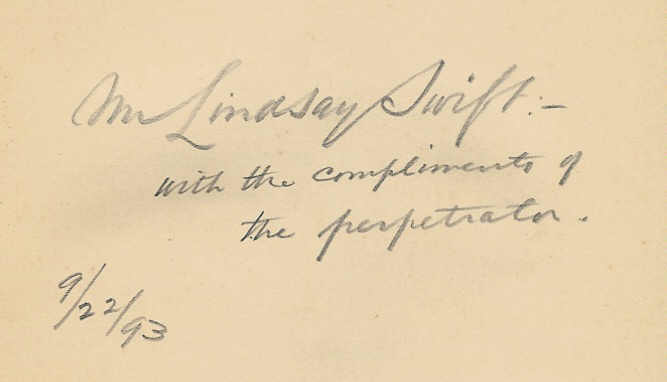 Mr Lindsay Swift:—
with the compliments of
the perpetrator.
9/22/93